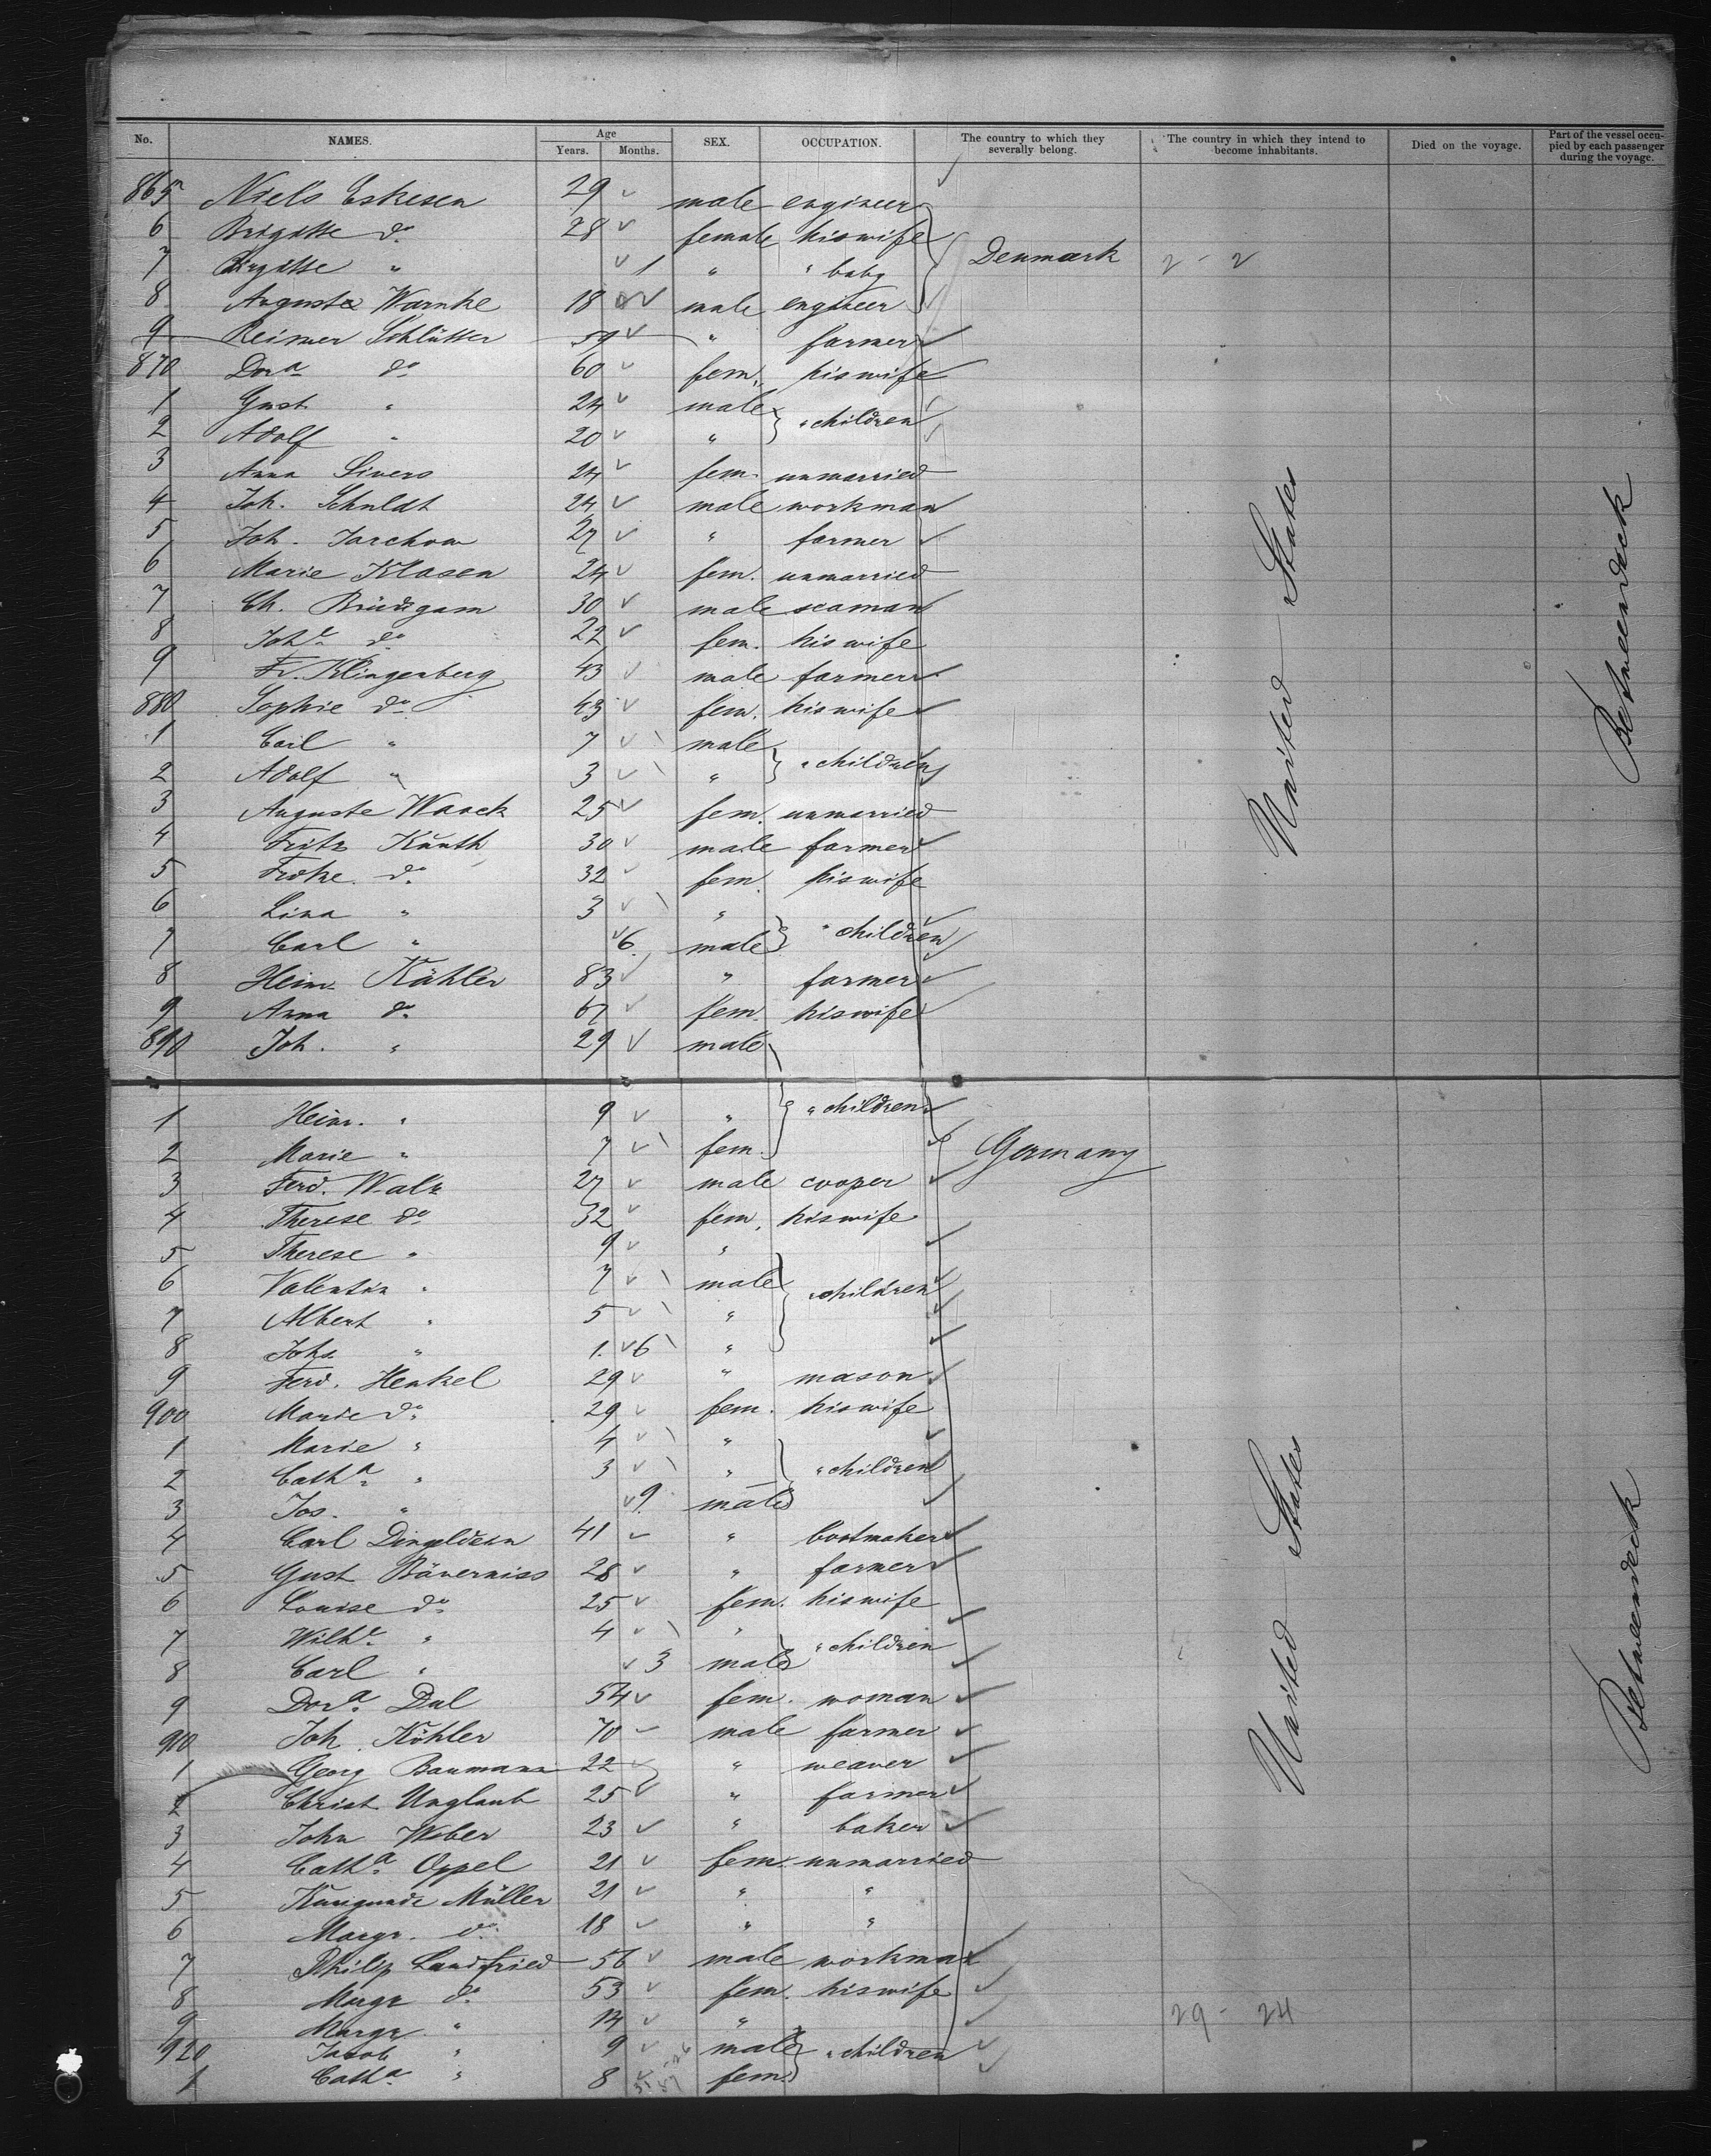 No. NAMES. Age Years. Months. SEX. OCCUPATION. The country to which they severally belong. The country in which they intend to become inhabitants. Died on the voyage. Part of the vessel occupied by each passenger during the voyage.
865 Niels Eskesen 29 male engineer
6 Brigitte do 28 female his wife
7 Birgitte " 1 " " baby Denmark 2 - 2
8 Auguste Warnke 18 male engineer
9 Reimer Schlütter 59 " farmer
870 Dora do 60 fem. his wife
1 Gust. " 24 male " children
2 Adolf " 20 "
3 Anna Sivers 24 fem. unmarried
4 Joh. Schuldt 24 male workman
5 Joh. Jarchow 27 " farmer
6 Marie Klasen 24 fem. unmarried
7 Ch. Brüdgam 30 male seaman
8 Johe do 22 fem. his wife
9 Fr. Klingenberg 43 male farmer
880 Sophie do 43 fem. his wife
1 Carl " 7 male " children
2 Adolf " 3 "
3 Auguste Waack 25 fem. unmarried
4 Fritz Kunth 30 male farmer
5 Fridke do 32 fem. his wife
6 Lina " 3 " " children
7 Carl " 6 male
8 Heinr. Kähler 83 " farmer
9 Anna do 67 fem. his wife
890 Joh. " 29 male
1 Heinr. " 9 " " children
2 Marie " 7 fem. Germany
3 Ferd. Walz 27 male cooper
4 Therese do 32 fem. his wife
5 Therese " 9 "
6 Valentin " 7 male " children
7 Albert " 5 "
8 Johs " 1. 6 "
9 Ferd. Henkel 29 " mason
900 Marie do 29 fem. his wife
1 Marie " 4 "
2 Catha " 3 " " children
3 Jos. " 9 male
4 Carl Dingeldein 41 " bootmaker
5 Gust Bäverniss 28 " farmer
6 Louise do 25 fem. his wife
7 Wilhe " 4 " " children
8 Carl " 3 male
9 Dora Dal 54 fem. woman
910 Joh. Köhler 70 male farmer
1 Georg Baumann 22 " weaver
2 Christ. Unglaub 25 " farmer
3 John Weber 23 " baker
4 Catha Oppel 21 fem. unmarried
5 Kunigunde Müller 21 " "
6 Margr. do 18 " "
7 Philip Landfried 56 male workman
8 Margr do 53 fem. his wife
9 Margr. " 14 " 29 - 24
920 Jacob " 9 male " children
1 Catha " 8 fem.
United States
Betweendeck
United States
Betweendeck